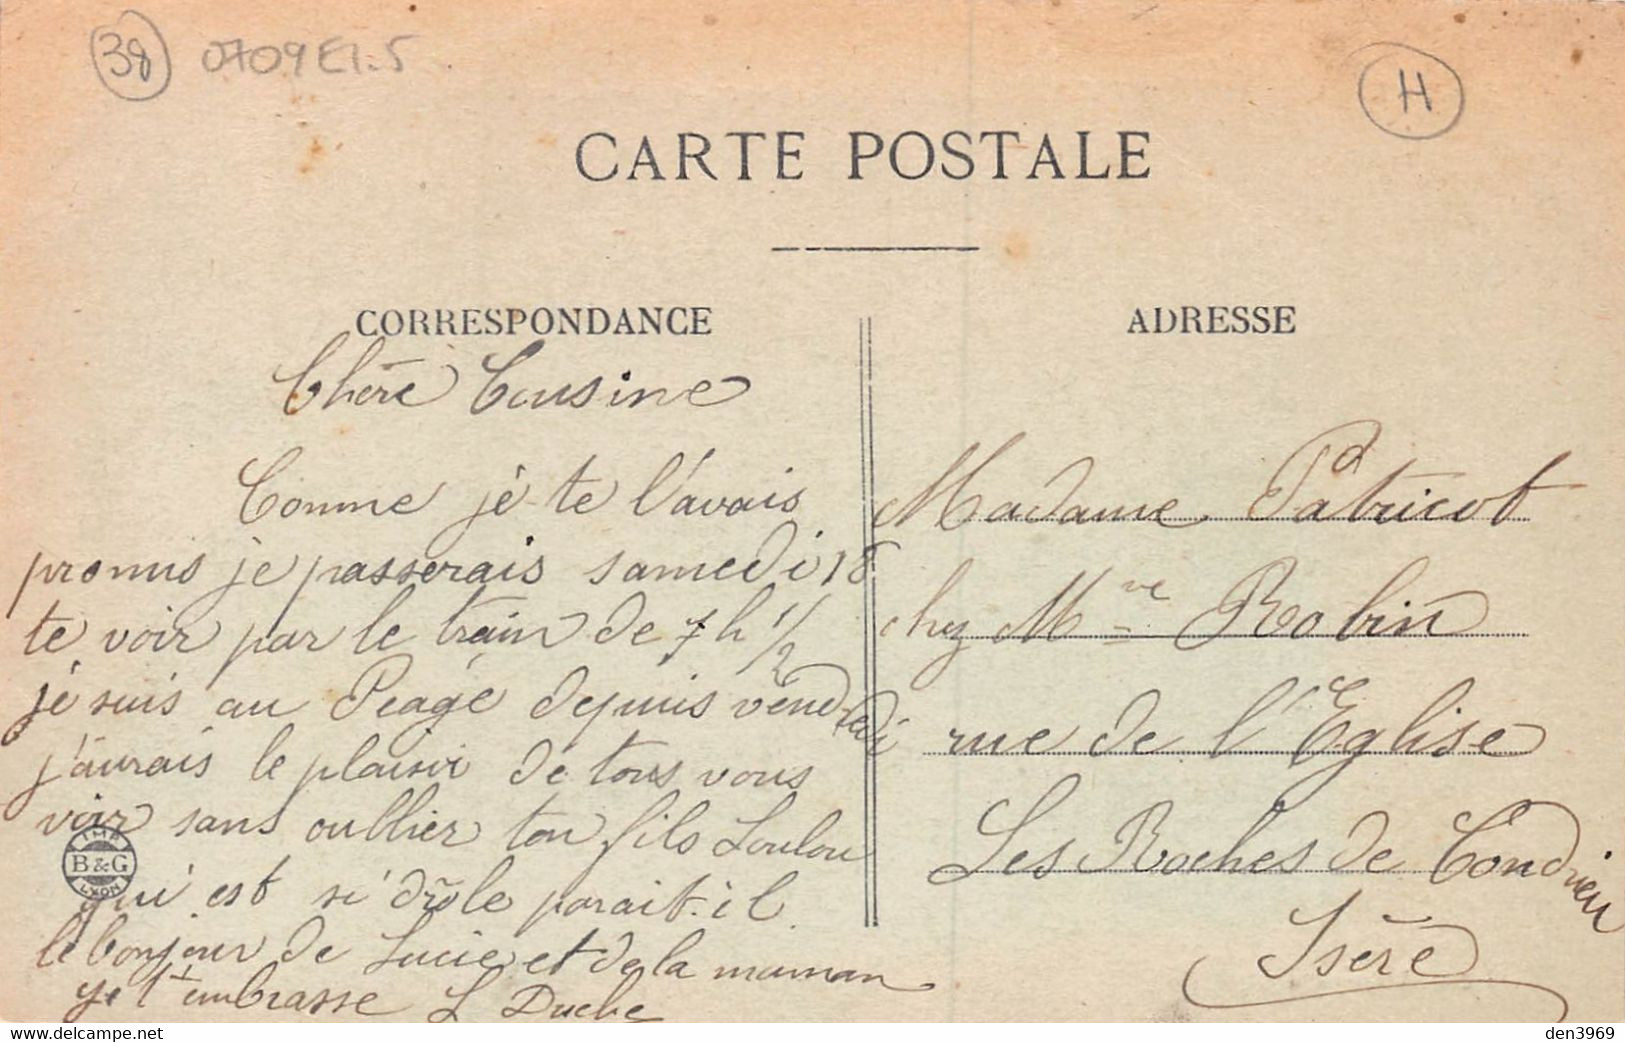 38 0709E1.5
H
CARTE POSTALE
CORRESPONDANCE
Chère Cousine
Comme je te l'avais
promis je passerais samedi 18
te voir par le train de 7h 1/2
je suis au Péage depuis vendredi
j'aurais le plaisir de tous vous
voir sans oublier ton fils Loulou
qui est si drôle parait-il
le bonjour de Lucie et de la maman
je t'embrasse L Duche
IMP. B&G LYON
ADRESSE
Madame Patricot
chez Mme Vve Robin
rue de l'Eglise
Les Roches de Condrieu
Isère
www.delcampe.net
den3969